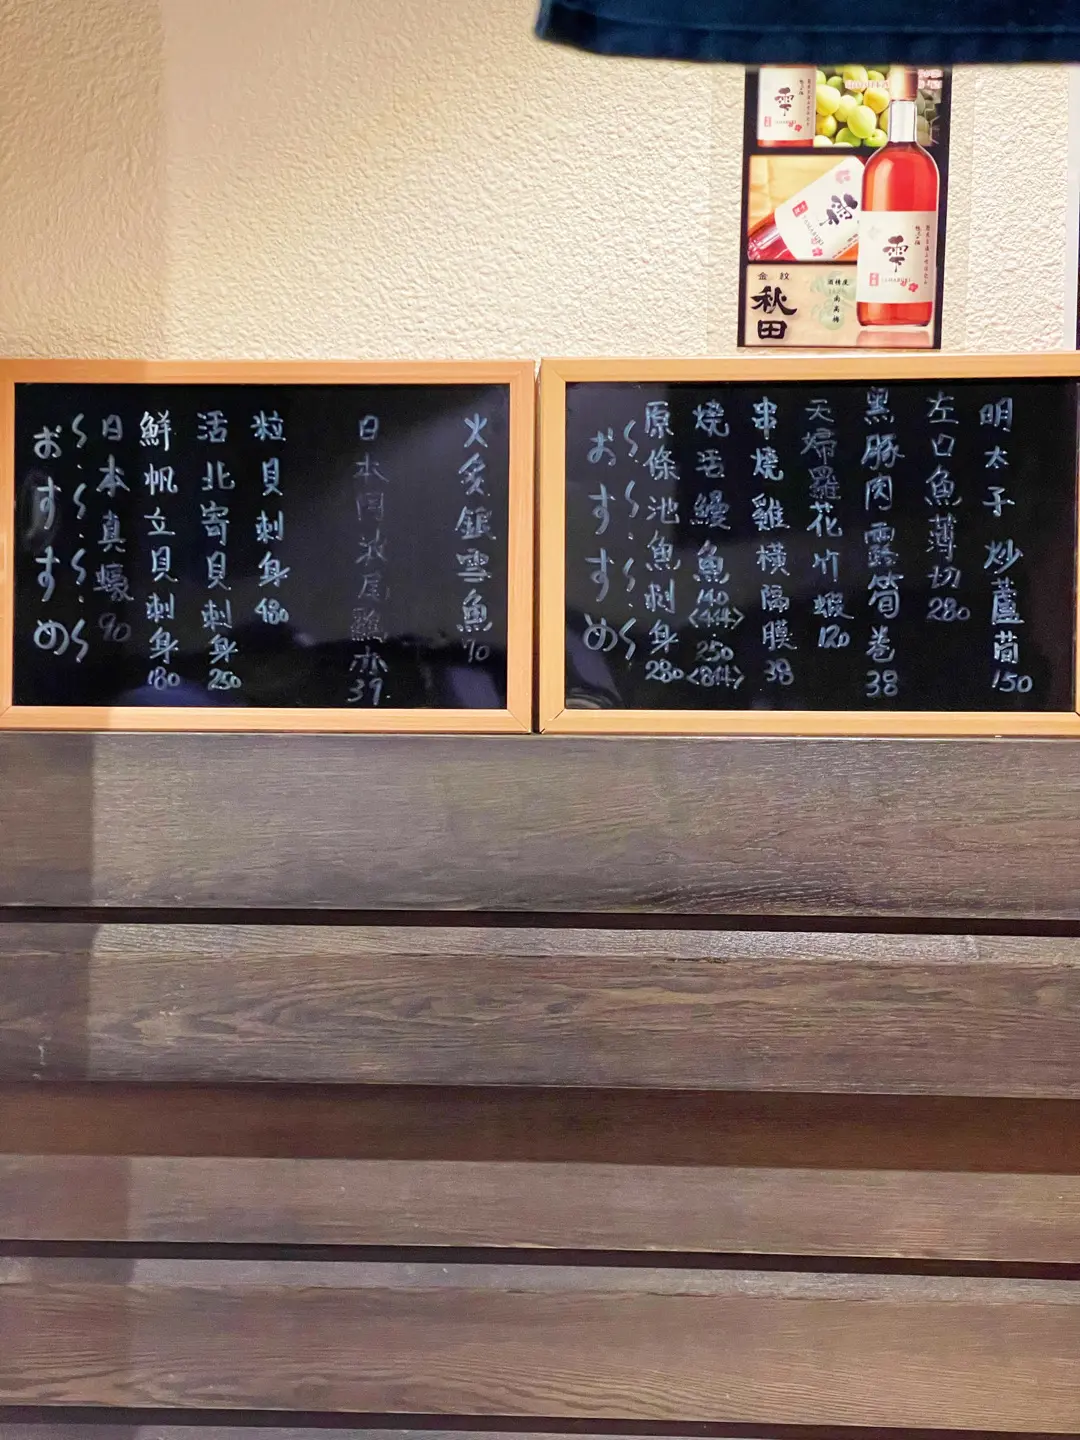 雫
雫
雫
金紋
秋田
酒精度
南高梅
おすすめ
日本真蠔 90
鮮帆立貝刺身 180
活北寄貝刺身 250
粒貝刺身 480
日本 39
火炙銀雪魚 90
おすすめ
原條池魚刺身 280
燒活鰻魚 140 <4件> 250 <8件>
串燒雞橫隔膜 38
天婦羅花竹蝦 120
黑豚肉露筍卷 38
左口魚薄切 280
明太子炒蘆筍 150